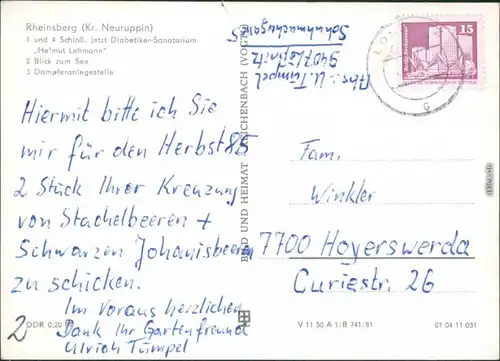 Rheinsberg (Kr. Neuruppin)
1 und 4 Schloß, jetzt Diabetiker-Sanatorium
„Helmut Lehmann"
2 Blick zum See
3 Dampferanlegestelle
Hiermit bitte ich Sie
mir für den Herbst 85
2 Stück Ihrer Kreuzung
von Stachelbeeren +
Schwarzen Johanisbeeren
zu schicken.
Im Voraus herzlichen
Dank Ihr Gartenfreund
Ulrich Tümpel
2
DDR 0,20
BILD UND HEIMAT REICHENBACH (VOGTL
Abs: U. Tümpel
9407 Lößnitz
Schuhmachergasse 5
15
G
Fam.
Winkler
7700 Hoyerswerda
Curiestr. 26
V 11 50 A 1/B 741/81
01 04 11 031